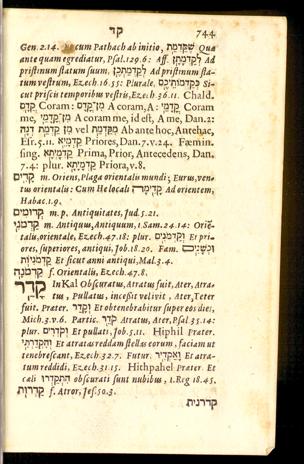 קד 744
Gen. 2.14. Et cum Pathach ab initio, שקדמת Qua
antequam egrediatur, Psal. 129.6: Aff. לקדמתן Ad
pristinum statum suum, לקדמתכן Ad pristinum sta-
tum vestrum, Ezech 16.55: Plurale, כקדמותיכם Si-
cut priscis temporibus vestris, Ezech 36.11. Chald.
קדם Coram: מן־קדם A coram, A: קדמי Coram
me, מן־קדמי A coram me, id est, A me, Dan. 2:
מן קדמת דנה vel מקדמת Ab ante hoc, Antehac,
Esr. 5.11. קדמיא Priores, Dan. 7. v. 24. Fæmin.
sing. קדמיתא Prima, Prior, Antecedens, Dan.
7.4: plur. קדמיתא Priora, v. 8.
קדים m. Oriens, Plaga orientalis mundi; Eurus, ven-
tus orientalis: Cum He locali קדימה Ad orientem,
Habac. 1.9.
קדומים m. p. Antiquitates, Jud. 5.21.
קדמוני m. Antiquus, Antiquum, 1 Sam. 24.14: Orien-
talis, orientale, Ezech. 47.18: plur. וקדמנים Et pri-
ores, superiores, antiqui, Job. 18.20. Fæm.
וכשנים
קדמניות Et sicut anni antiqui, Mal. 3.4.
קדמונה f. Orientalis, Ezech. 47.8.
קדר In Kal Obscuratus, Atratus fuit, Ater, Atra-
tus, Pullatus, incessit velivit, Ater, Teter
fuit. Præter. וקדר Et obtenebrabitur super eos dies,
Mich. 3. v. 6. Partic. קדר Atratus, Ater, Psal 35.14:
plur. וקדרים Et pullati, Job. 5.11. Hiphil Præter.
והקדרתי Et atratas reddam stellas eorum, faciam ut
tenebrescant, Ezech. 32.7. Futur. ואקדיר Et atra-
tum reddidi, Ezech. 31.15. Hithpahel Præter. Et
cæli התקדרו obscurati sunt nubibus, 1. Reg 18.45.
קדרות f. Atror, Jes. 50.3.
קדרנית